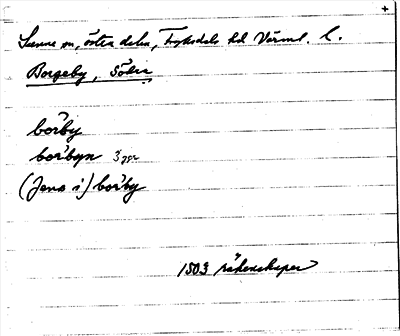 +
Sunne sn, östra delen, Fryksdals hd Värml. l.
Borgeby, Södra
borby
borbyn 3 ggr
(Jens i) borby
1503 räkenskaper